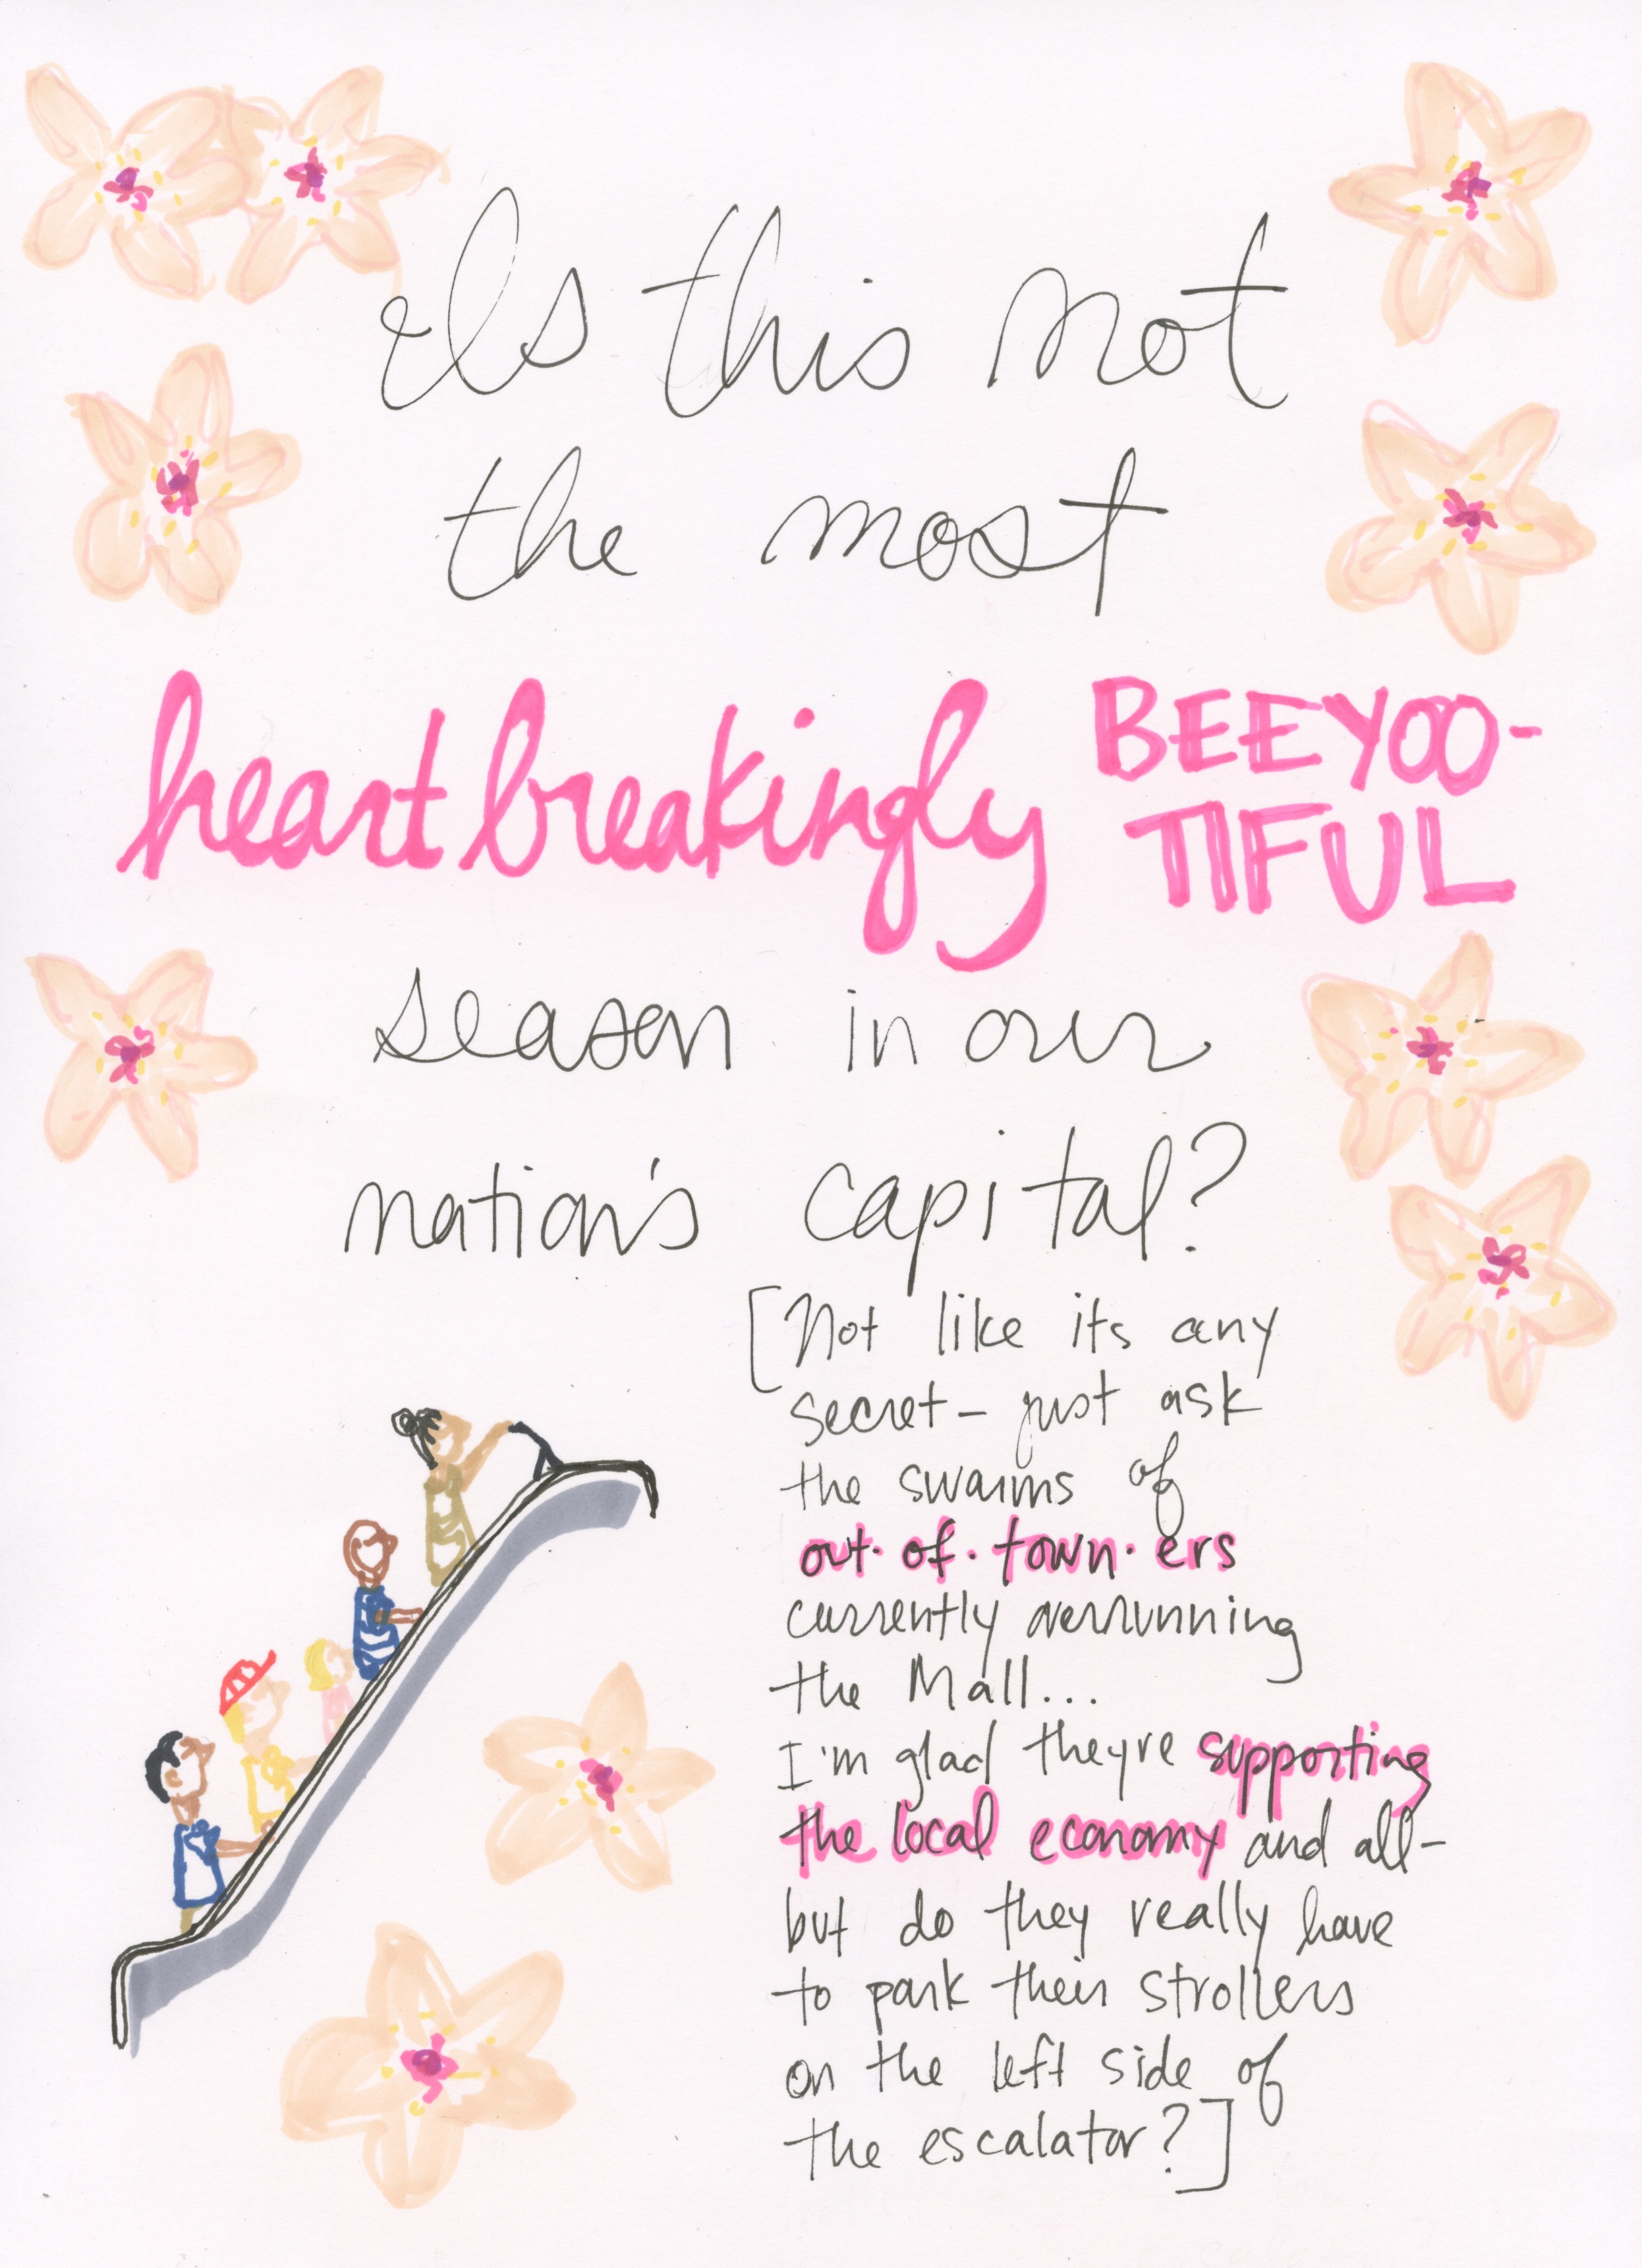 Is this not
the most
heartbreakingly BEEYOO-
TIFUL
season in our
nation's capital?
[Not like its any
secret - just ask
the swarms of
out·of·town·ers
currently overrunning
the Mall...
I'm glad theyre supporting
the local economy and all-
but do they really have
to park their strollers
on the left side of
the escalator?]